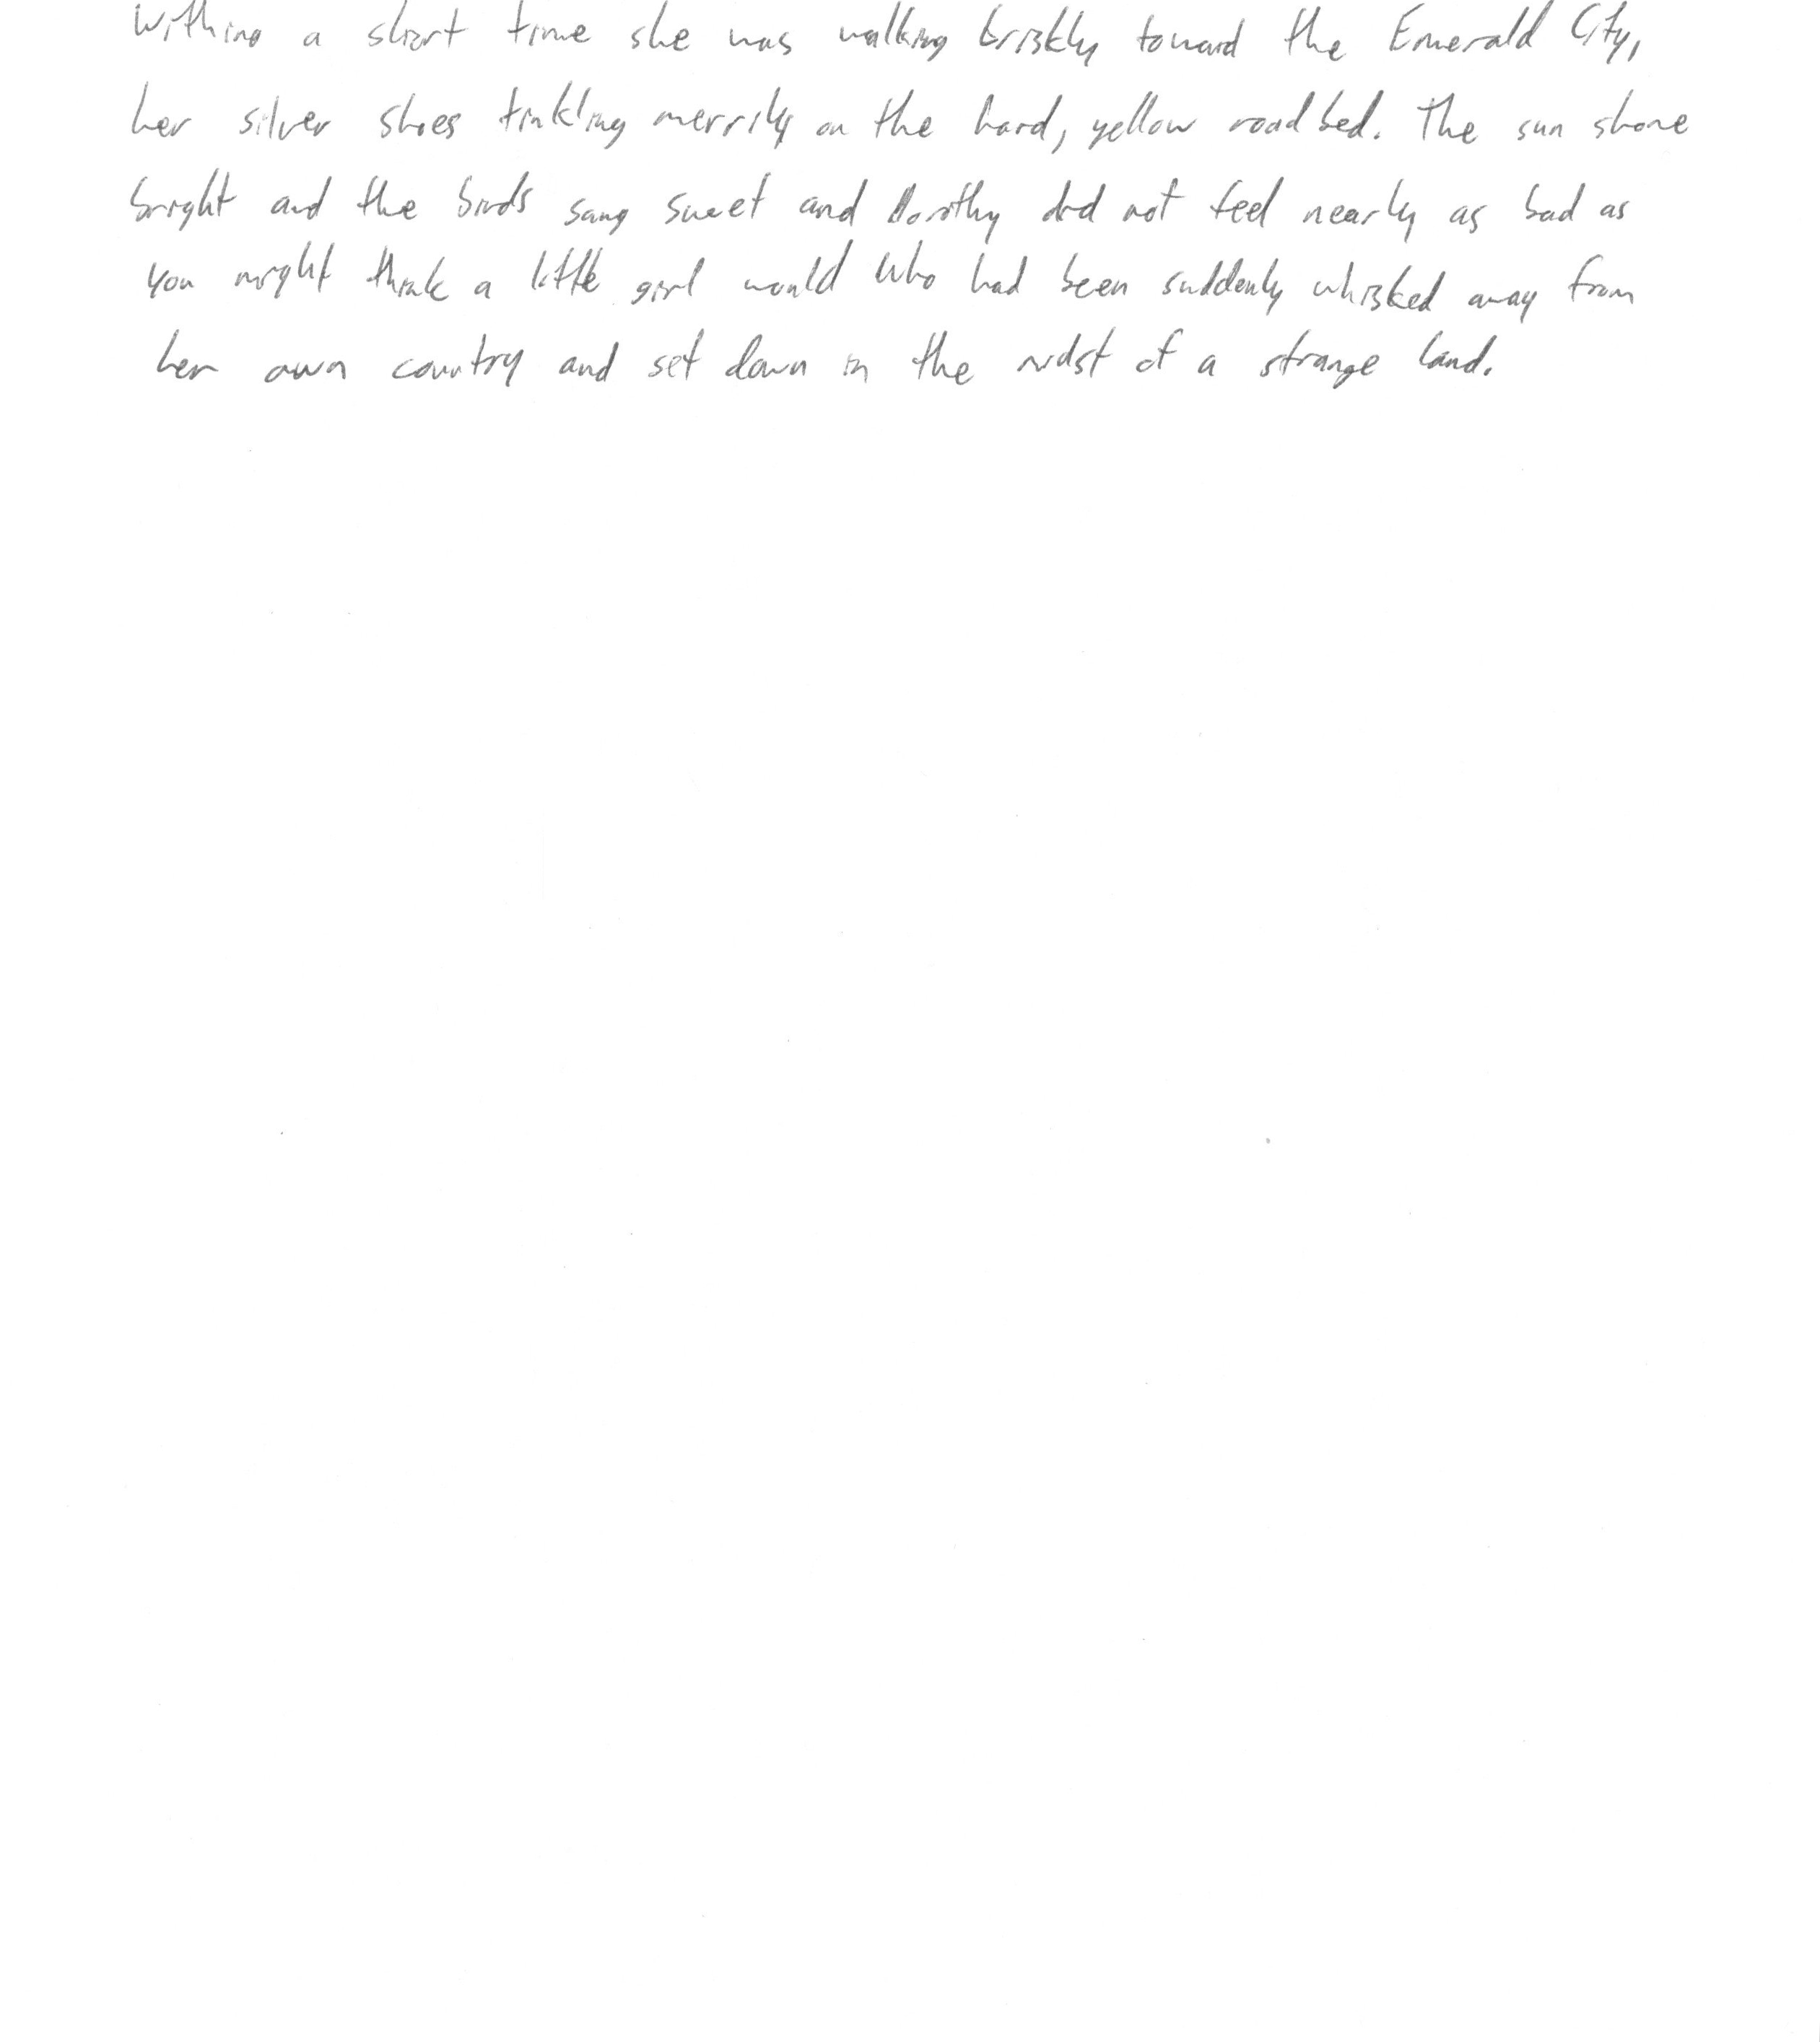 Withing a short time she was walking briskly toward the Emerald City,
her silver shoes tinkling merrily on the hard, yellow roadbed. The sun shone
bright and the birds sang sweet and Dorothy did not feel nearly as bad as
you might think a little girl would who had been suddenly whisked away from
her own country and set down in the midst of a strange land.